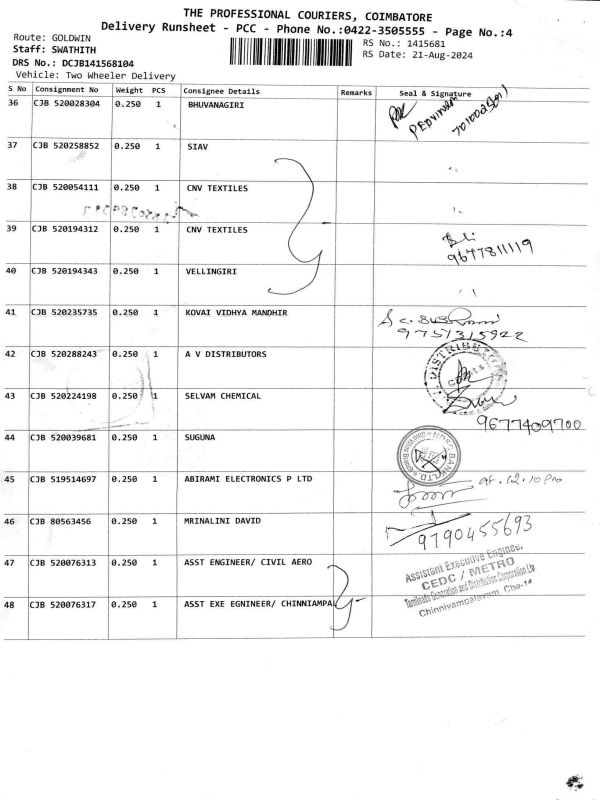 THE PROFESSIONAL COURIERS, COIMBATORE
Delivery Runsheet - PCC - Phone No.:0422-3505555 - Page No.:4
Route: GOLDWIN
Staff: SWATHITH
RS No.: 1415681
DRS No.: DCJB141568104
RS Date: 21-Aug-2024
Vehicle: Two Wheeler Delivery
S No Consignment No Weight PCS Consignee Details Remarks Seal & Signature
36 CJB 520028304 0.250 1 BHUVANAGIRI
37 CJB 520258852 0.250 1 SIAV
38 CJB 520054111 0.250 1 CNV TEXTILES
39 CJB 520194312 0.250 1 CNV TEXTILES
9677811119
40 CJB 520194343 0.250 1 VELLINGIRI
41 CJB 520235735 0.250 1 KOVAI VIDHYA MANDHIR
9757315922
42 CJB 520288243 0.250 1 A V DISTRIBUTORS
43 CJB 520224198 0.250 1 SELVAM CHEMICAL
9677409700
44 CJB 520039681 0.250 1 SUGUNA
45 CJB 519514697 0.250 1 ABIRAMI ELECTRONICS P LTD
46 CJB 80563456 0.250 1 MRINALINI DAVID
9790455693
47 CJB 520076313 0.250 1 ASST ENGINEER/ CIVIL AERO
Assistant Executive Engineer
CEDC / METRO
Tamilnadu Generation and Distribution Corporation Ltd
48 CJB 520076317 0.250 1 ASST EXE EGNINEER/ CHINNIAMPAL
Chinnivampalayam, Cbe-14